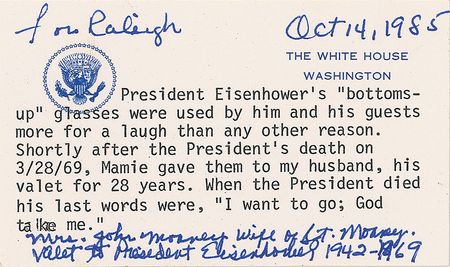 For Raleigh
Oct 14, 1985
THE WHITE HOUSE
WASHINGTON
President Eisenhower's "bottoms-
up" glasses were used by him and his guests
more for a laugh than any other reason.
Shortly after the President's death on
3/28/69, Mamie gave them to my husband, his
valet for 28 years. When the President died
his last words were, "I want to go; God
take me."
Mrs. John Mooney Wife of Sgt. Mooney.
Valet to President Eisenhower 1942-1969